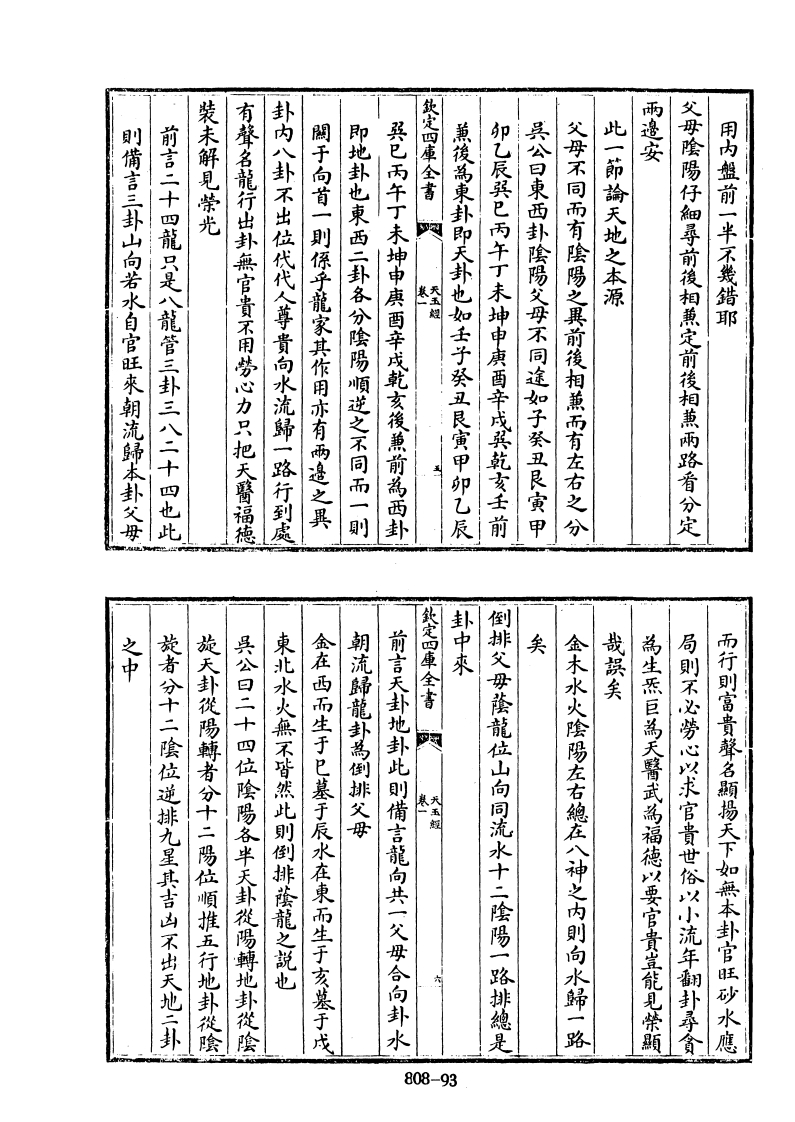 用內盤前一半不幾錯耶
父母陰陽仔細尋前後相蒹定前後相蒹兩路看分定
兩邉安
此一節論天地之本源
父母不同而有陰陽之異前後相蒹而有左右之分
呉公曰東西卦陰陽父母不同途如子癸丑艮寅甲
卯乙辰巽巳丙午丁未坤申庚酉辛戌巽乾亥壬前
蒹後為東卦即天卦也如壬子癸丑艮寅甲卯乙辰
欽定四庫全書
天玉經
卷一
五
巽巳丙午丁未坤申庚酉辛戌乾亥後蒹前為西卦
即地卦也東西二卦各分陰陽順逆之不同而一則
關于向首一則係乎龍家其作用亦有兩邉之異
卦内八卦不出位代代人尊貴向水流歸一路行到處
有聲名龍行出卦無官貴不用勞心力只把天醫福德
裝未解見榮光
前言二十四龍只是八龍管三卦三八二十四也此
則備言三卦山向若水自官旺來朝流歸本卦父母
而行則富貴聲名顯揚天下如無本卦官旺砂水應
局則不必勞心以求官貴世俗以小流年翻卦尋貪
為生炁巨為天醫武為福德以要官貴豈能見榮顯
哉誤矣
金木水火陰陽左右總在八神之内則向水歸一路
矣
倒排父母蔭龍位山向同流水十二陰陽一路排總是
卦中來
欽定四庫全書
天玉經
卷一
六
前言天卦地卦此則備言龍向共一父母合向卦水
朝流歸龍卦為倒排父母
金在西而生于巳墓于辰水在東而生于亥墓于戌
東北水火無不皆然此則倒排蔭龍之説也
呉公曰二十四位陰陽各半天卦從陽轉地卦從陰
旋天卦從陽轉者分十二陽位順推五行地卦從陰
旋者分十二陰位逆排九星其吉凶不出天地二卦
之中
808-93